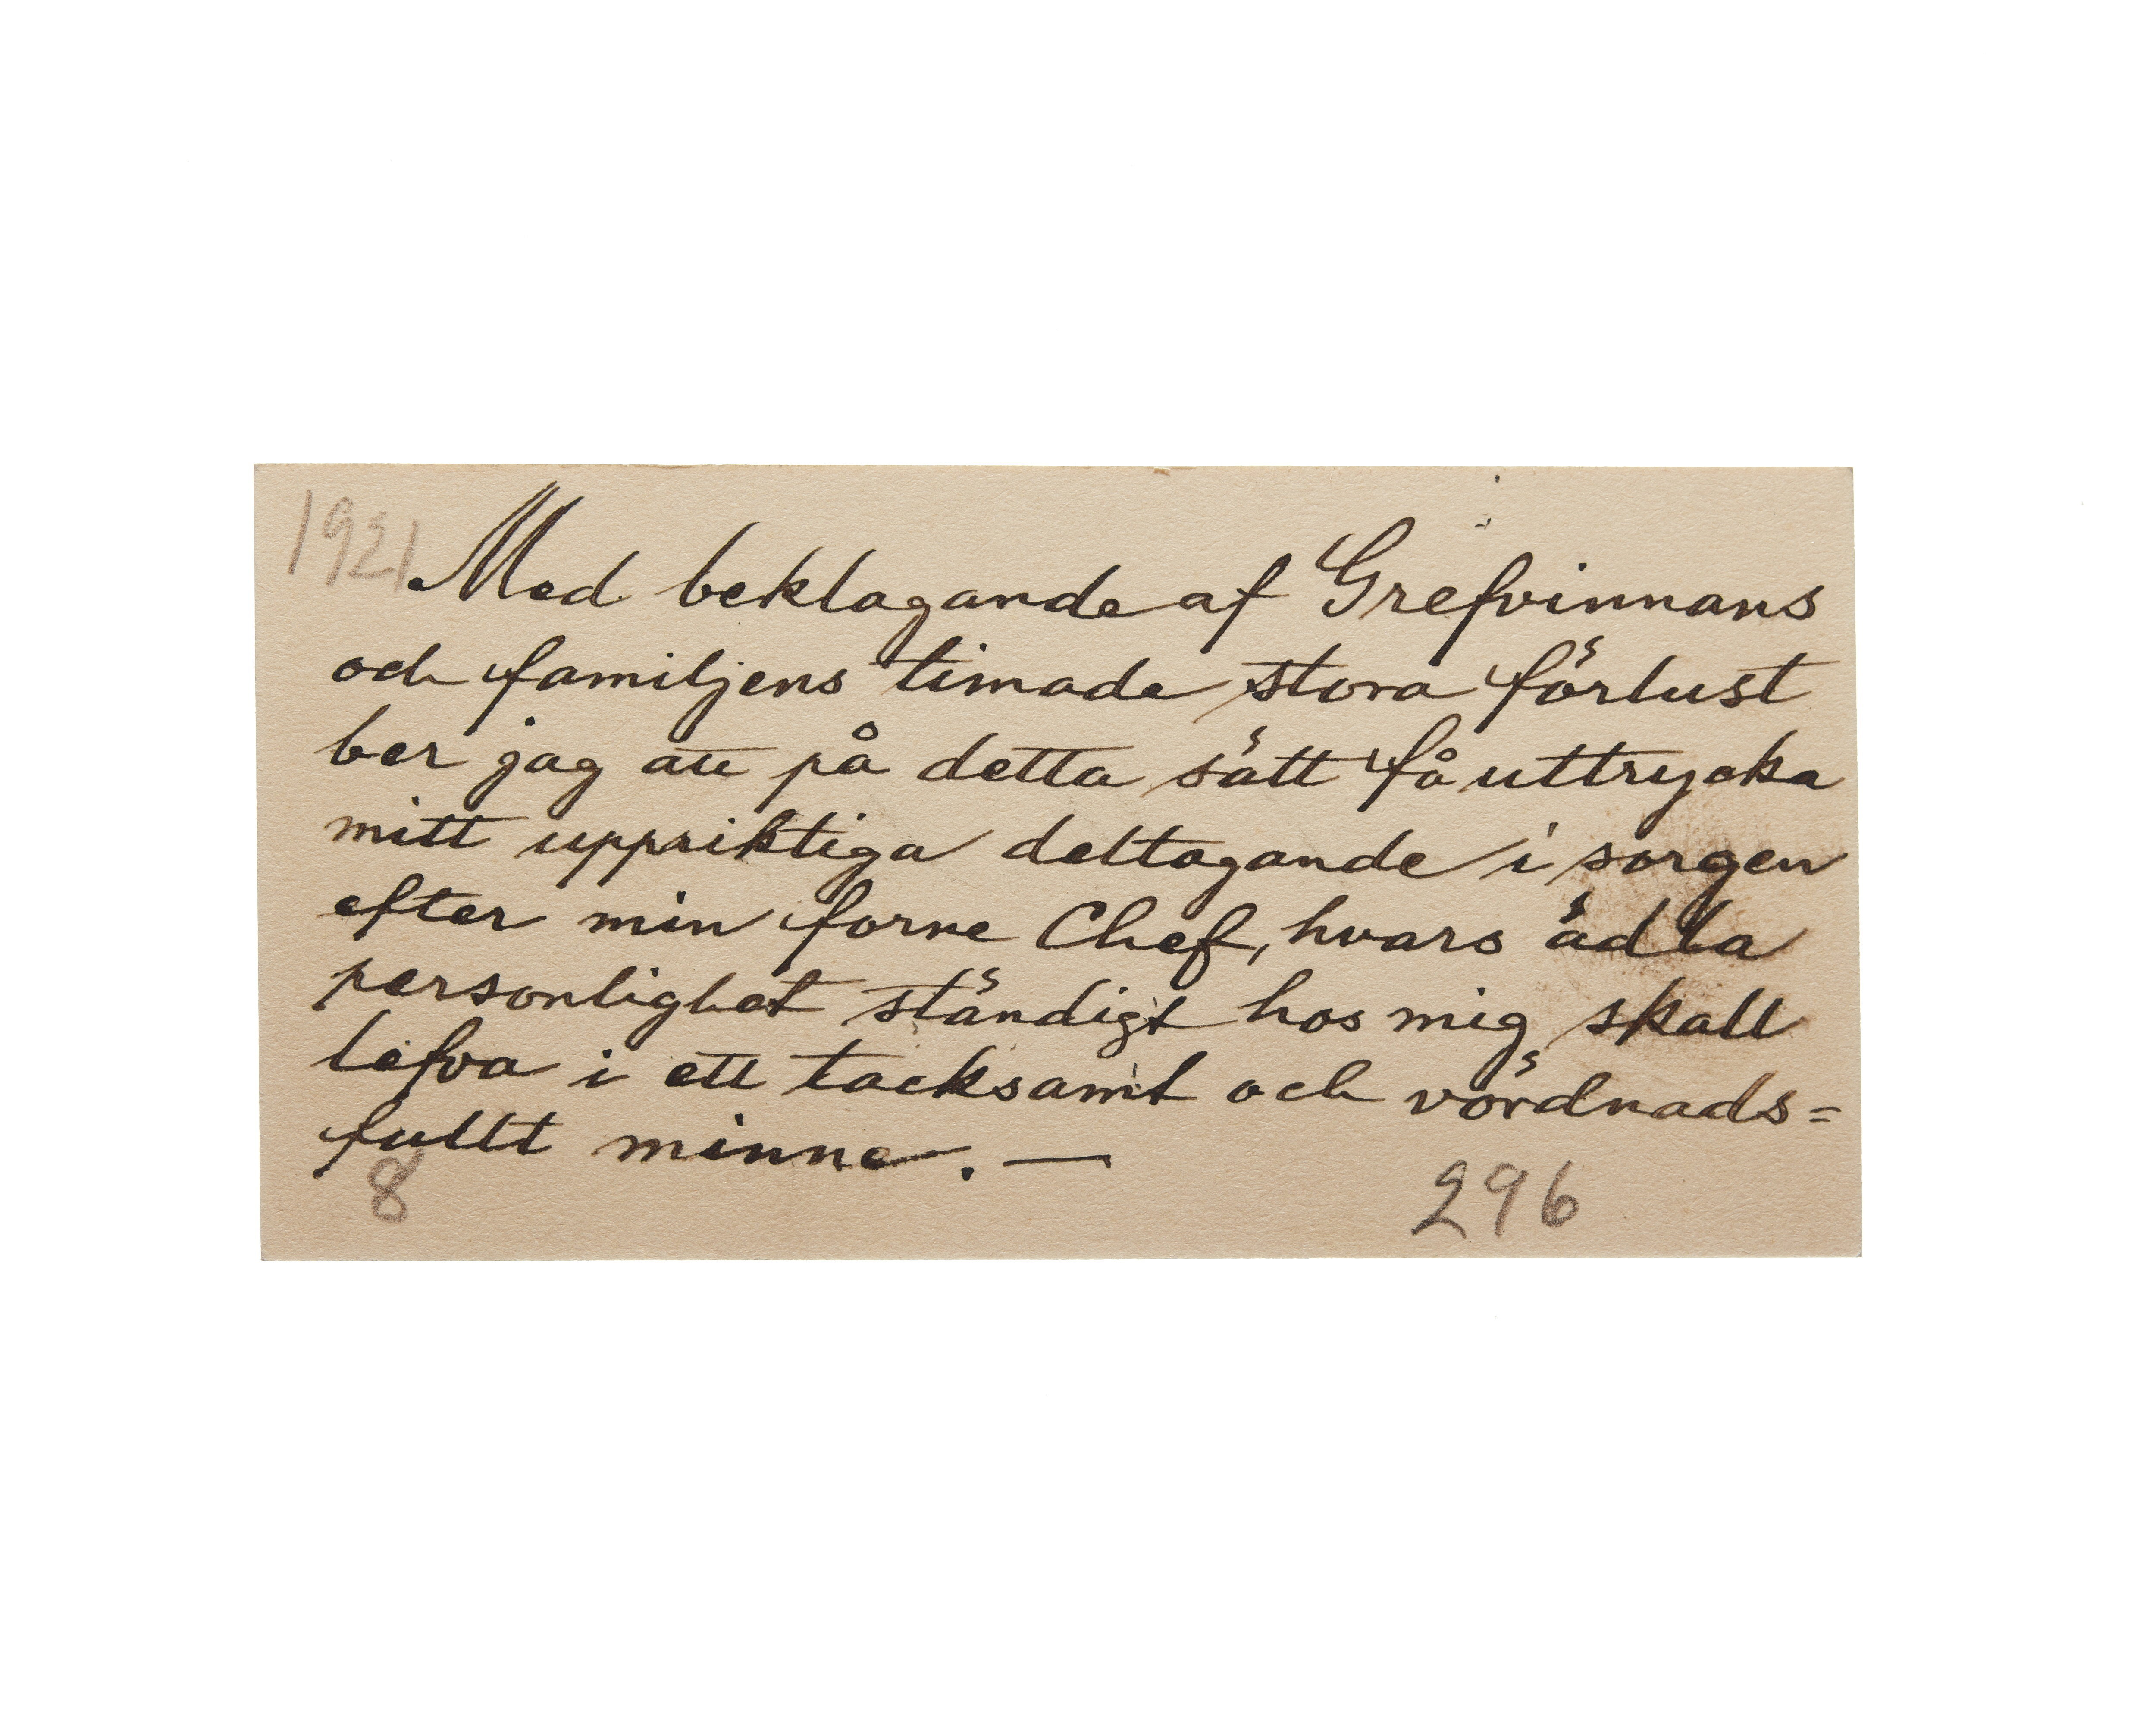 1921
Med beklagande af Grefvinnans
och familjens timade stora förlust
ber jag att på detta sätt få uttrycka
mitt uppriktiga deltagande i sorgen
efter min forne Chef, hvars ädla
personlighet ständigt hos mig skall
lefva i ett tacksamt och vördnads=
fullt minne. —
8 296